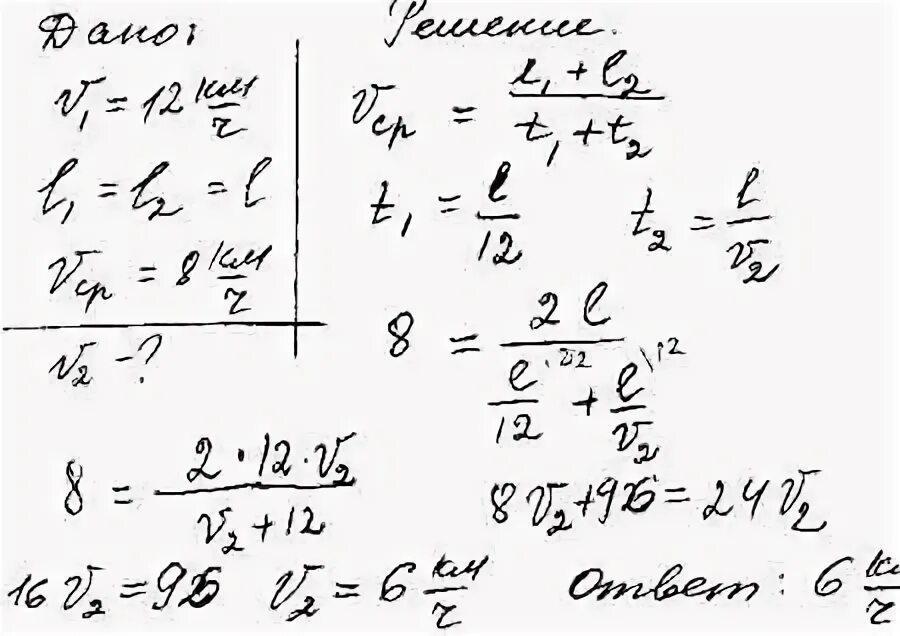 Дано:
v₁ = 12 км/ч
l₁ = l₂ = l
vср = 8 км/ч
v₂ - ?
Решение.
vср = (l₁ + l₂)/(t₁ + t₂)
t₁ = l/12    t₂ = l/v₂
8 = 2l/(l/12 \v₂ + l/v₂ \12)
8 = 2·12·v₂/(v₂ + 12)
8v₂ + 96 = 24v₂
16v₂ = 96    v₂ = 6 км/ч
Ответ: 6 км/ч